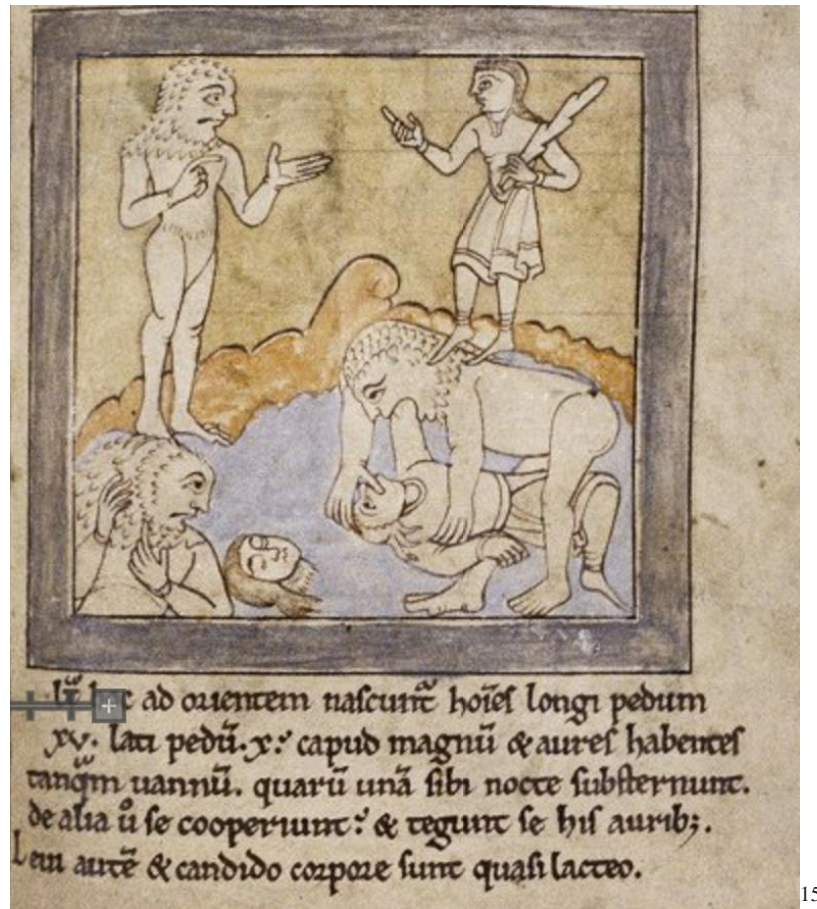 ad orientem nascunt̃ hoīes longi pedum
xv. lati pedū.x. capud magnū & aures habentes
tanq̃m uannū. quarū unā sibi nocte substernunt.
de alia ů se cooperiunt. & tegunt se his aurib;.
Leui autē & candido corpore sunt quasi lacteo.
15